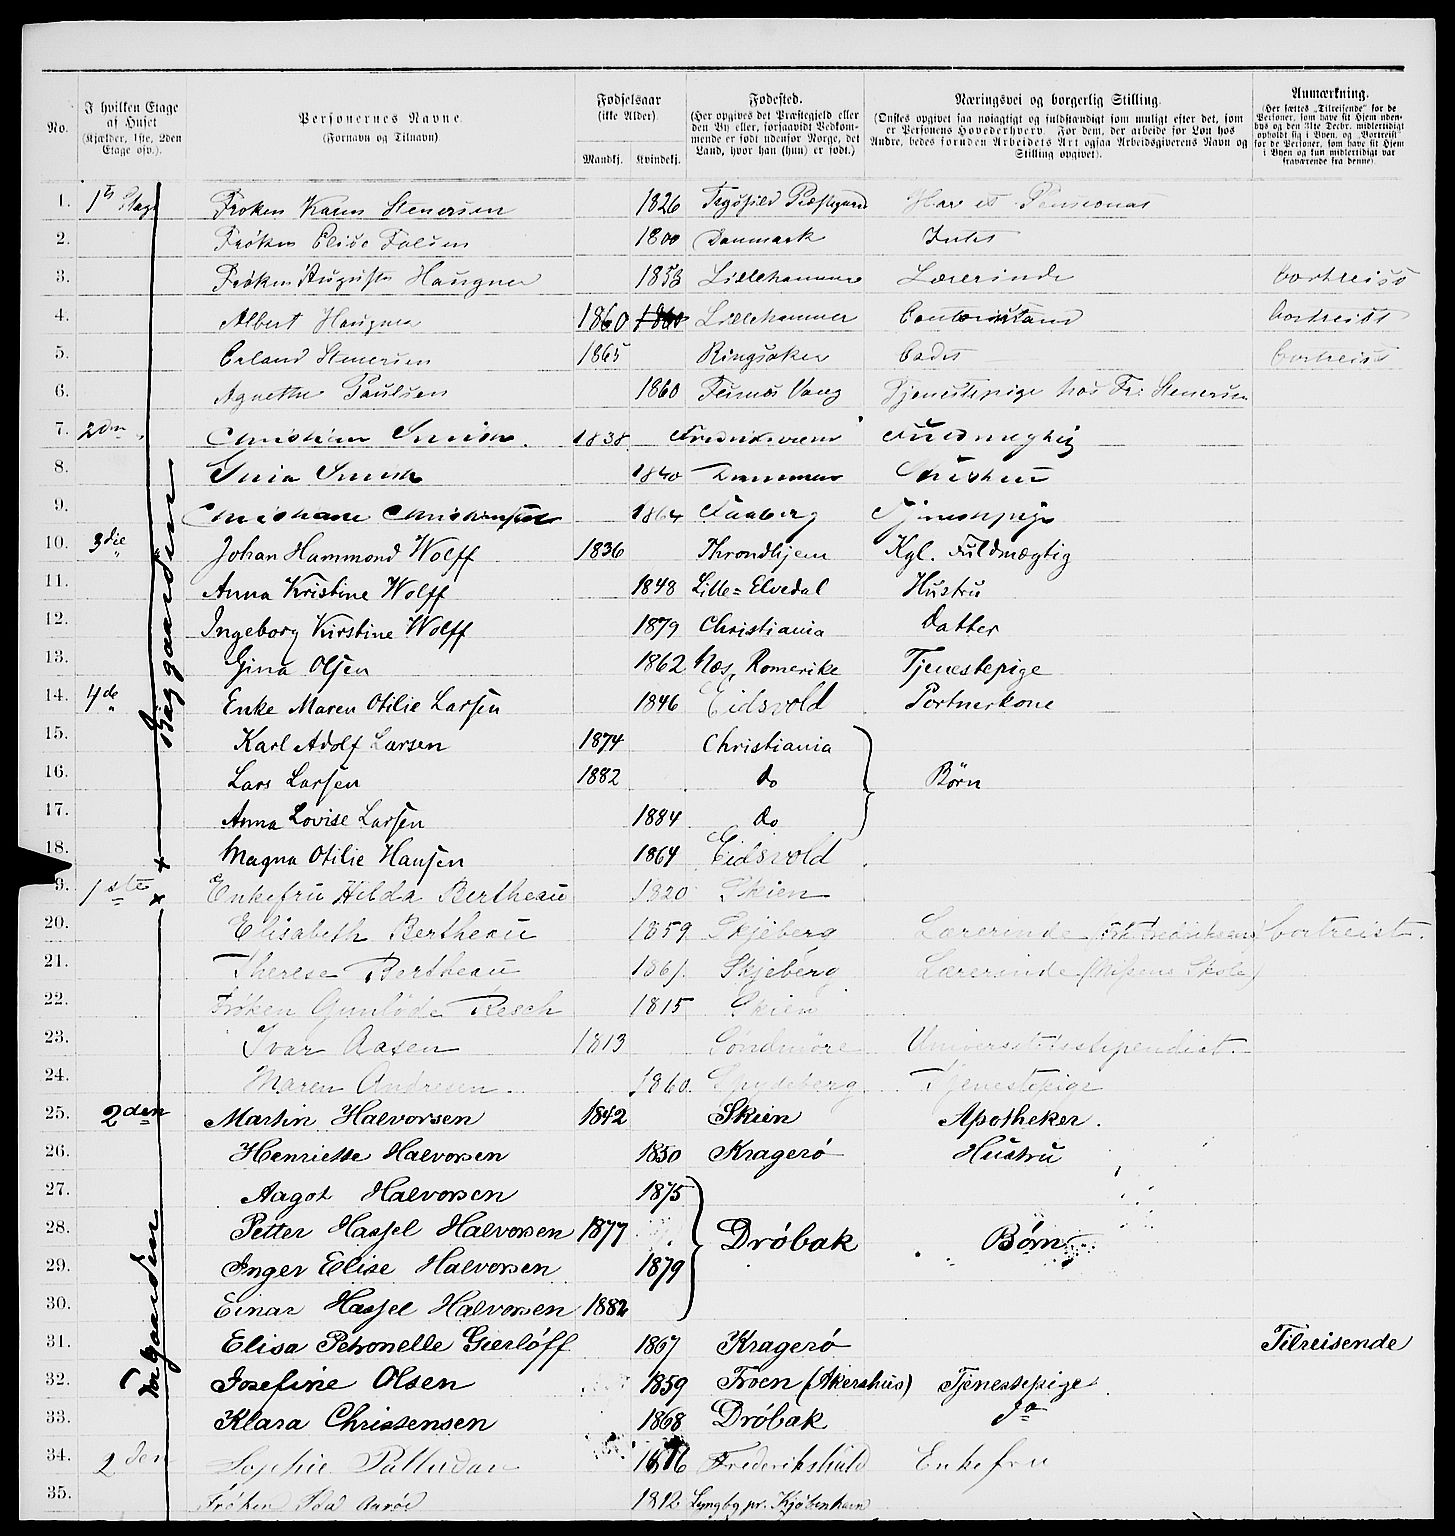 No. | I hvilken Etage af Huset (Kjælder, 1ste, 2den Etage osv.). | Personernes Navne. (Fornavn og Tilnavn). | Fødselsaar (ikke Alder). Mandkj. Kvindekj. | Fødested. (Her opgives det Præstegjeld eller den By eller, forsaavidt Vedkommende er født udenfor Norge, det Land, hvor han (hun) er født.) | Næringsvei og borgerlig Stilling. (Ønskes opgivet saa nøiagtigt og fuldstændigt som muligt efter det, som er Personens Hovederhverv. For dem, der arbeide for Løn hos Andre, bedes foruden Arbeidets Art ogsaa Arbeidsgiverens Navn og Stilling opgivet). | Anmærkning. (Her sættes "Tilreisende" for de Personer, som have sit Hjem udenbys og den 31te Decbr. midlertidigt ophold sig i Byen, og "Bortreist" for de Personer, som have sit Hjem i Byen og kun midlertidigt var fraværende fra denne).
1. 1ste Etage Frøken Karen Stenersen 1826 Præstegaard Har et Pensionat
2. Frøken Elise Falsen 1800 Danmark Intet
3. Frøken Augusta Haugner 1853 Lillehammer Lærerinde bortreist
4. Albert Haugner 1860 1860 Lillehammer Contorist bortreist
5. Erland Stenersen 1865 Ringsaker Cadet bortreist
6. Agnethe Paulsen 1860 Vang Tjenestepige hos Frk. Stenersen
7. 2den Christian Smith 1838 Fredriksværn Fuldmægtig
8. Smith 1840 Drammen Hustru
9. Christiane Christiansen 1864 Faaberg Tjenestepige
10. 3die Johan Hammond Wolff 1836 Throndhjem Kgl. Fuldmægtig
11. Anna Kristine Wolff 1848 Lille=Elvedal Hustru
12. Ingeborg Kirstine Wolff 1879 Christiania Datter
13. Gina Olsen 1862 Næs, Romerike Tjenestepige
14. 4de Enke Maren Otilie Larsen 1846 Eidsvold Portnerkone
15. Karl Adolf Larsen 1874 Christiania
16. Lars Larsen 1882 do Børn
17. Anna Lovise Larsen 1884 do
18. Magna Otilie Hansen 1864 Eidsvold
Baggaarden
9. 1ste Enkefru Hilda Bertheau 1820 Skien
20. Elisabeth Bertheau 1859 Skjeberg Lærerinde bortreist.
21. Therese Bertheau 1861 Skjeberg Lærerinde (Nissens Skole)
22. Frøken Gunløde Resch 1815 Skien
23. Ivar Aasen 1813 Søndmøre Universitetsstipendiat.
24. Maren Andresen. 1860. Spydeberg Tjenestepige
25. 2den Martin Halvorsen 1842 Skien Apotheker.
26. Henriette Halvorsen 1850 Kragerø Hustru
27. Aagot Halvorsen 1875
28. Petter Hassel Halvorsen 1877 Drøbak Børn
29. Inger Elise Halvorsen 1879
30. Einar Hassel Halvorsen 1882
31. Elisa Petronelle Gierløff 1867 Kragerø Tilreisende
32. Josefine Olsen 1859 Froen (Akershus) Tjenestepige
33. Klara Christensen 1868 Drøbak do
Forgaarden
34. 2den Sophie Palludan Frederikshald Enkefru
35. Frøken Ida Aarøe 1812 Lyngby pr. Kjøbenhavn